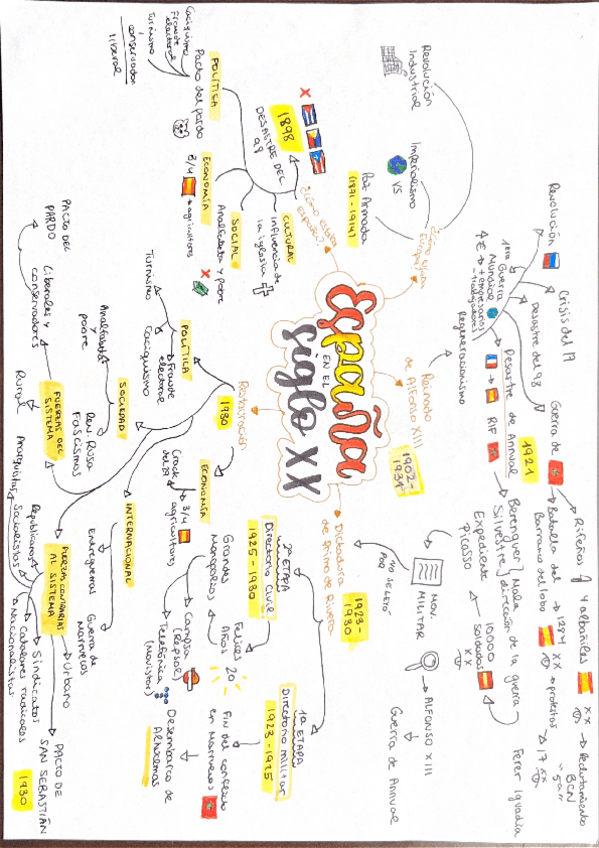 España
EN EL
siglo XX
¿Cómo estaba
Europa?
Revolución
Industrial
Imperialismo
VS
Paz Armada
(1871-1914)
¿Cómo estaba
España?
1898
DESASTRE DEL
98
POLÍTICA
Pacto del pardo
Caciquismo
Fraude
electoral
Turnismo
conservador
liberal
ECONOMÍA
3/4
agricultores
SOCIAL
Analfabeta y pobre
CULTURAL
Influencia de
la iglesia
Reinado
de Alfonso XIII
1902-
1931
Regeneracionismo
1era
Guerra
Mundial
+ empresarios
- trabajadores
Revolución
Crisis del 17
Desastre del 98
Desastre de Annual
1921
RIF
Guerra de
Rifeños
4 albañiles
XX
Reclutamiento
BCN
Batalla del
Barranco del lobo
1284
XX
protestas
17 XX
Berenguer
Silvestre
Mala
dirección de la guerra
Expediente
Picasso
10000
soldados
XX
Ferer Iguadia
Dictadura
de Primo de Rivera
1923-
1930
POR
MOV.
MILITAR
ALFONSO XIII
Guerra de Annual
1a ETAPA
Directorio militar
1923-1925
Fin del conflicto
en Marruecos
Desembarco de
Alhucemas
2a ETAPA
Directorio Civil
1925-1930
Felices
Años
20
Grandes
Monopolios
Campsa
(Repsol)
Telefónica
(Movistar)
Restauración
1930
POLÍTICA
Turnismo
Caciquismo
Fraude
electoral
ECONOMÍA
3/4
agricultores
Crack
del 29
SOCIEDAD
Analfabeta
y
pobre
INTERNACIONAL
Rev. Rusa
Fascismos
Entreguerras
Guerra de
Marruecos
FUERZAS DEL
SISTEMA
Liberales y
conservadores
PACTO DEL
PARDO
Rural
FUERZAS CONTRARIAS
AL SISTEMA
Urbano
Sindicatos
Catalanes radicales
o Nacionalistas
Republicanos
Socialistas
Anarquistas
PACTO DE
SAN SEBASTIÁN
1930